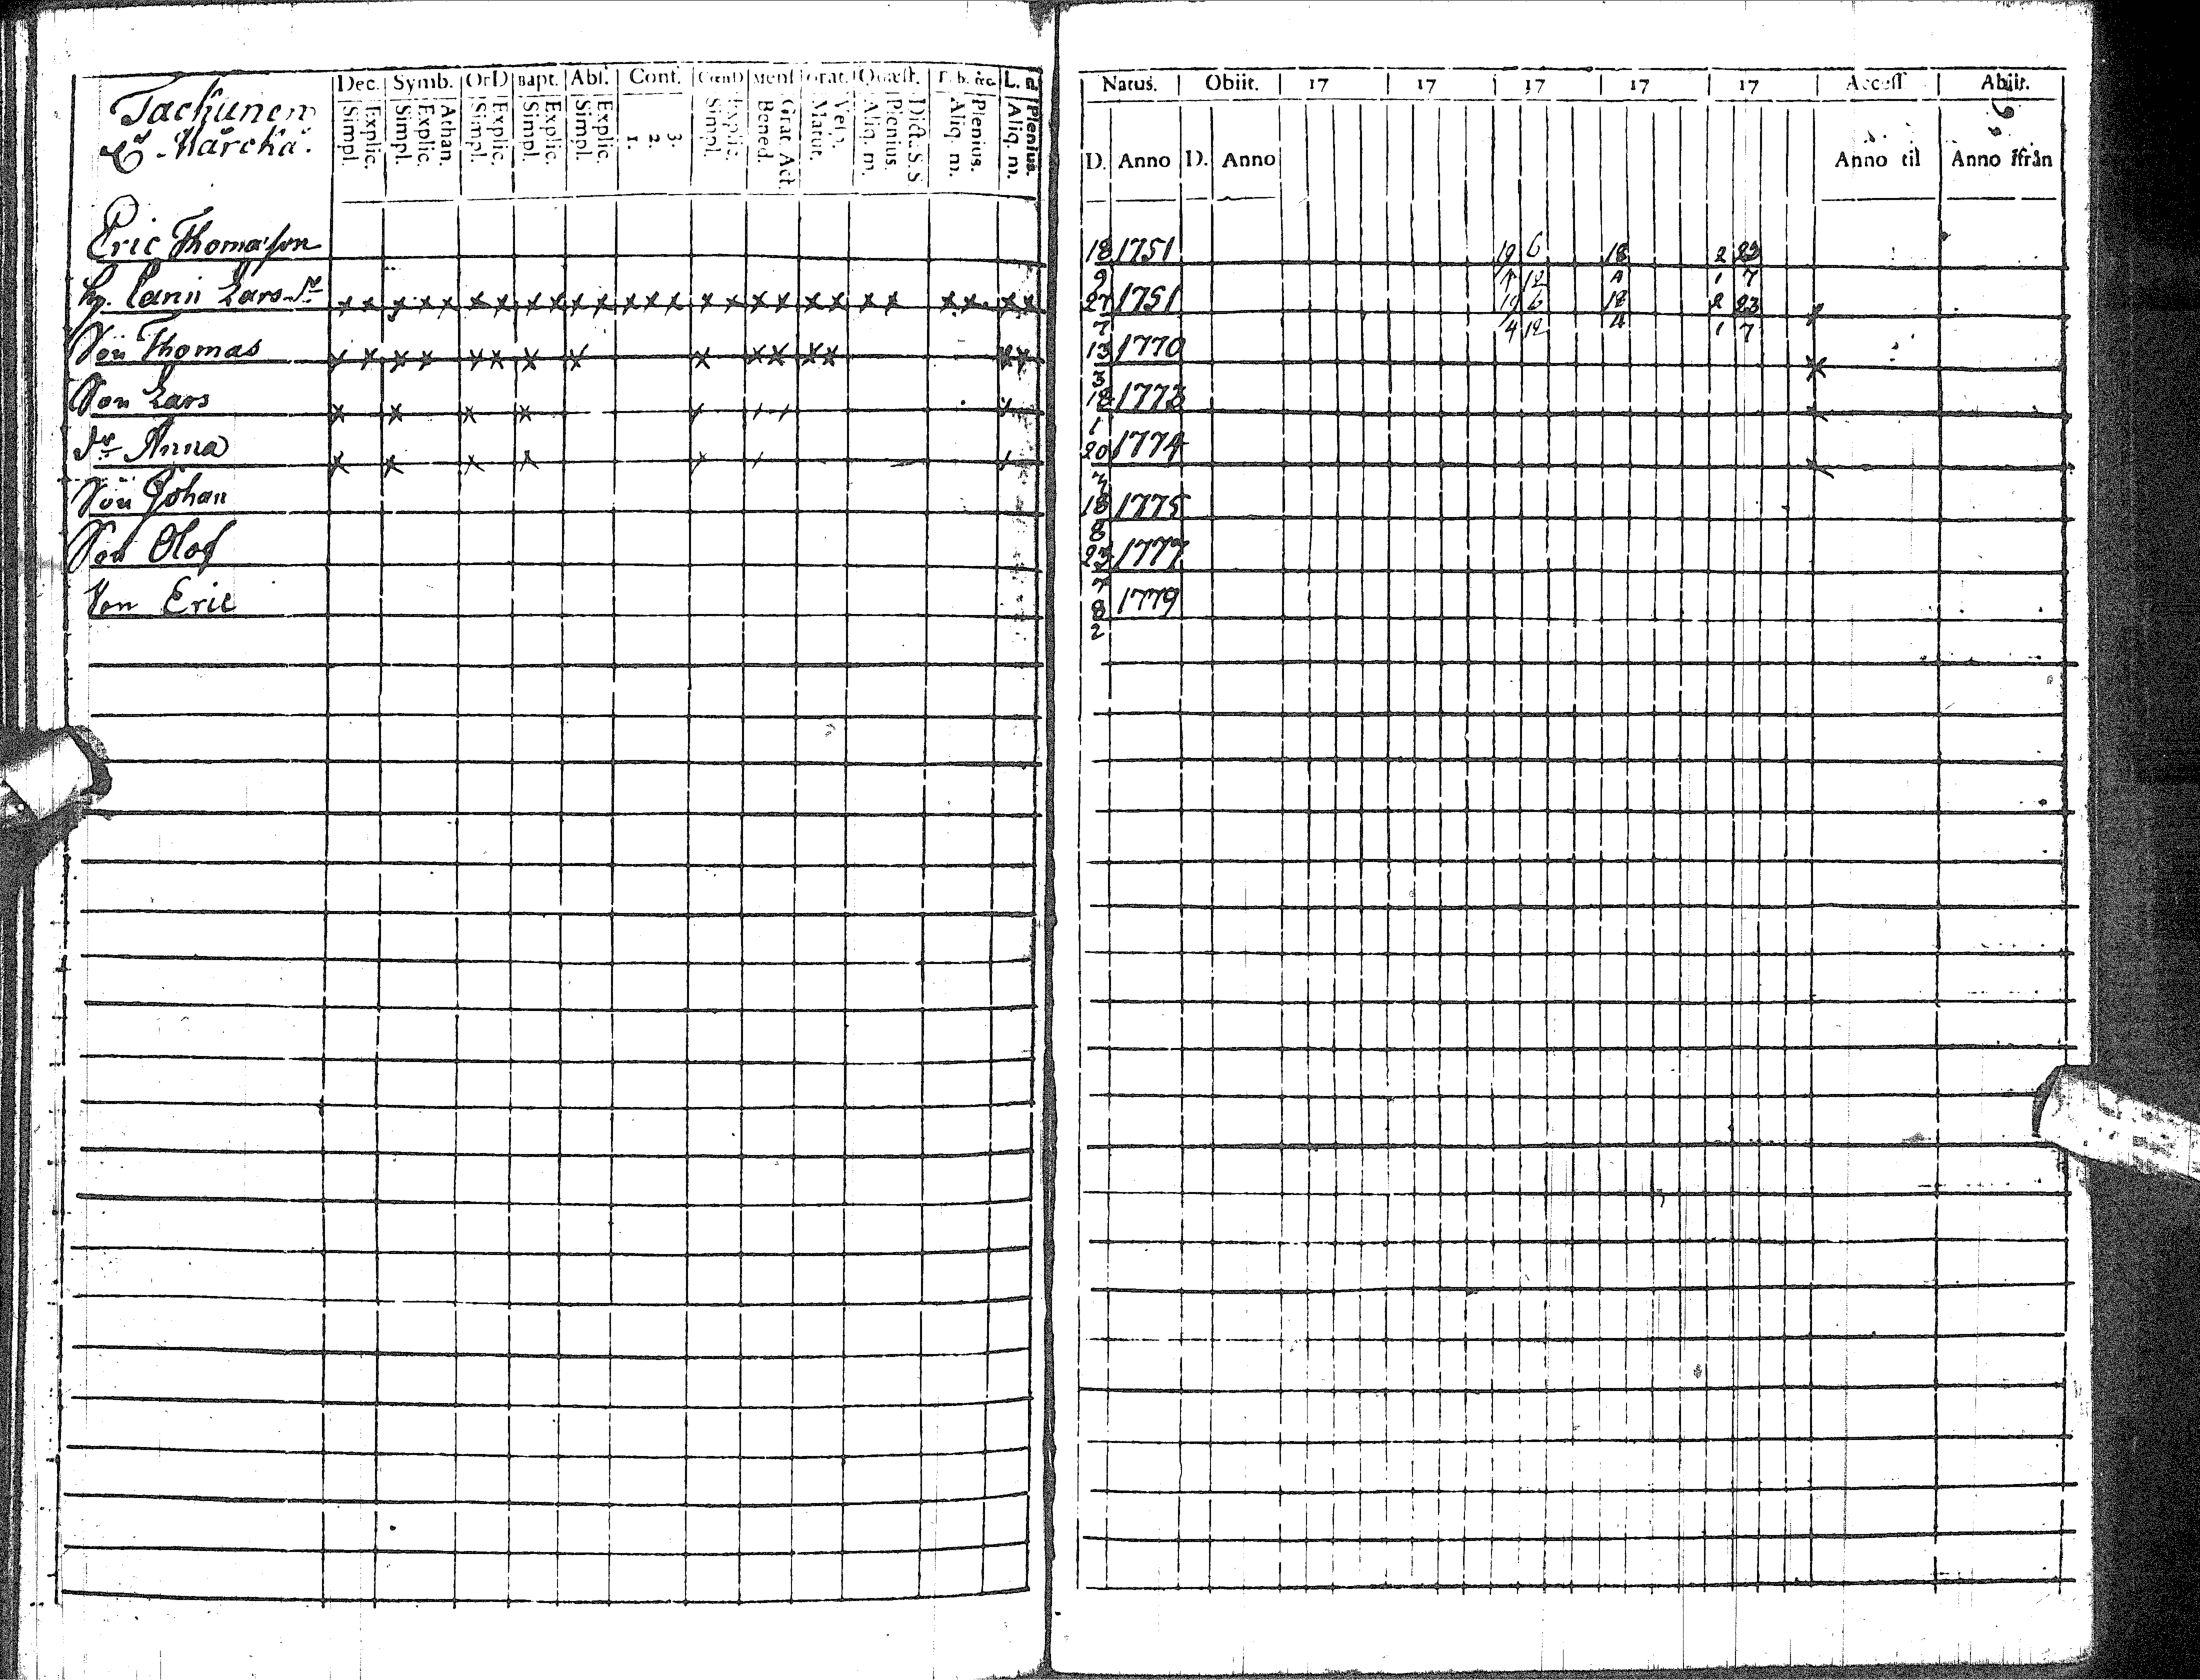 Dec. Symb. OrD Bapt. Abs. Conf. CœnD Mens Grat. Quæst. L. a
Simpl. Explic. Simpl. Explic. Athan. Simpl. Explic. Simpl. Explic. Simpl. Explic. 1. 2. 3. Simpl. Explic. Bened. Grat. Act. Matut. Vesp. Aliq. m. Plenius. Dict. S. S Aliq. m. Plenius. Aliq. m. Plenius.
Natus. Obiit. 17 17 17 17 17 Access Abiit.
D. Anno D. Anno Anno til Anno ifrån
Eric Thomasson 18 1751 19 6 18 2 23
9 4 12 4 1 7
Lars 27 1751 19 6 18 2 23
7 4 12 4 1 7
Son Thomas 13 1770
3
Son Lars 18 1773
1
Dr Anna 20 1774
Son Johan 18 1775
8
Son Olof 1777
7
Son Eric 8 1779
2